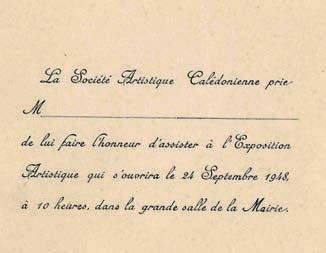 La Société Artistique Calédonienne prie
M
de lui faire l'honneur d'assister à l'Exposition
Artistique qui s'ouvrira le 24 Septembre 1948,
à 10 heures, dans la grande salle de la Mairie.